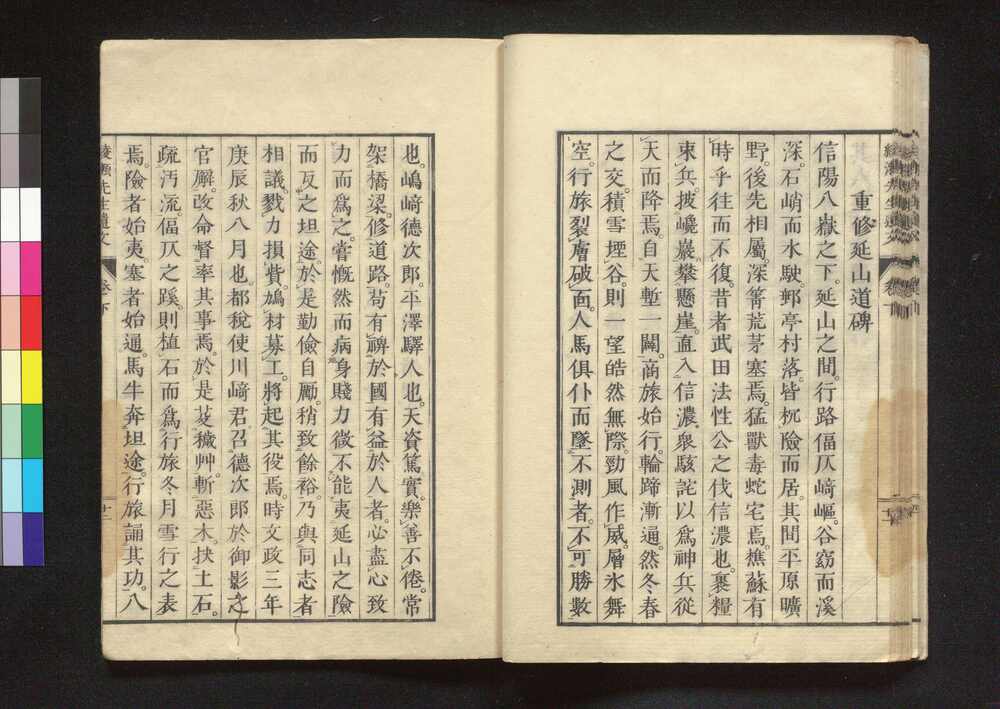 重修延山道碑
信陽八嶽之下。延山之間。行路偪仄﨑嶇。谷窈而溪
深。石峭而水駛。郵亭村落。皆杌險而居。其間平原曠
野。後先相屬。深箐荒茅塞焉。猛獸毒蛇宅焉。樵蘇有
時乎往而不復。昔者武田法性公之伐信濃也。裹糧
束兵。披巉巖。攀懸崖。直入信濃。衆駭詫以爲神兵從
天而降焉。自天塹一闢。商旅始行。輪蹄漸通。然冬春
之交。積雪堙谷。則一望皓然無際。勁風作威。層氷舞
空。行旅裂膚破面。人馬俱仆而墜不測者。不可勝數
也。嶋﨑德次郎。平澤驛人也。天資篤實。樂善不倦。常
架橋梁。修道路。苟有裨於國有益於人者。必盡心致
力而爲之。嘗慨然而病身賤力微不能夷延山之險
而反之坦途。於是勤儉自勵。稍致餘裕。乃與同志者
相議。戮力損貲。鳩材募工。將起其役焉。時文政三年
庚辰秋八月也。都稅使川﨑君。召德次郎於御影之
官廨。改命督率其事焉。於是芟穢艸。斬惡木。抉土石。
疏汚流。偪仄之蹊。則植石而爲行旅冬月雪行之表
焉。險者始夷。塞者始通。馬牛奔坦途。行旅誦其功。八
先生遺文 卷下 十二